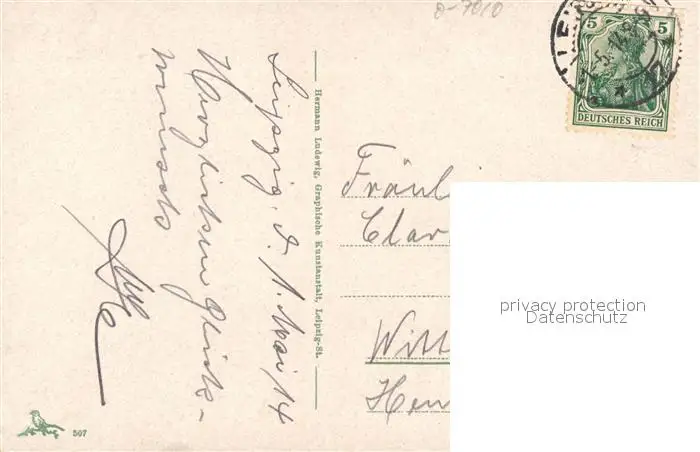 0-7010
5 5
DEUTSCHES REICH
Leipzig, d. 1. Mai 14
Herzlichen Glück-
wunsch
Hermann Ludewig, Graphische Kunstanstalt, Leipzig-St.
Fräul
Clar
Witt
Hen
privacy protection
Datenschutz
507